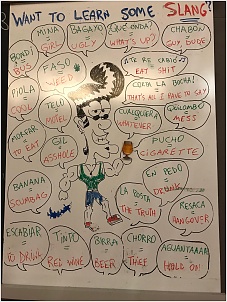 WANT TO LEARN SOME SLANG?
MINA
=
GIRL
BAGAYO
=
UGLY
¿QUÉ ONDA?
=
WHAT'S UP?
CHABON
=
GUY DUDE
BONDI
=
BUS
PASO
=
WEED
EAT SHIT
PIOLA
=
COOL
TELO
=
MOTEL
CORTA LA BOCHA!
THAT'S ALL I HAVE TO SAY
CUALQUIERA
=
WHATEVER
QUILOMBO
=
MESS
MORFAR
=
TO EAT
GIL
=
ASSHOLE
PUCHO
=
CIGARETTE
BANANA
=
SCUMBAG
EN PEDO
=
DRUNK
LA POSTA
=
THE TRUTH
RESACA
=
HANGOVER
ESCABIAR
=
TO DRINK
TINTO
=
RED WINE
BIRRA
=
BEER
CHORRO
=
THIEF
AGUANTAAAA
=
HOLD ON